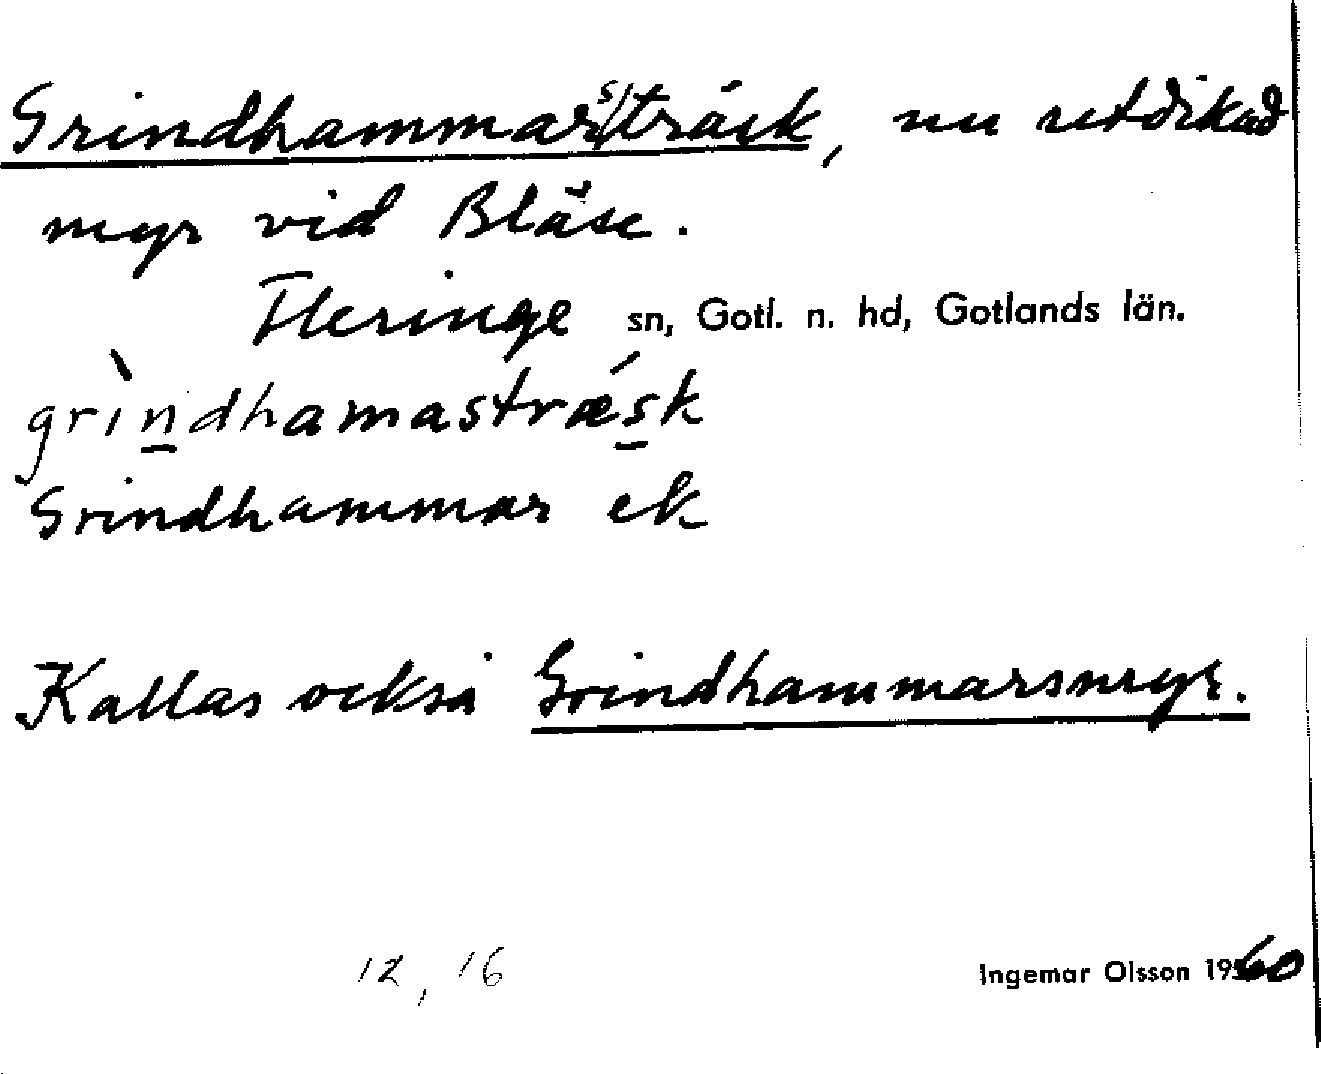 Grindhammarsträsk, nu utdikad
myr vid Bläse.
Fleringe sn, Gotl. n. hd, Gotlands län.
grìndhamastræ´sk
Grindhammar ek
Kallas också Grindhammarsmyr.
12, 16
Ingemar Olsson 1960